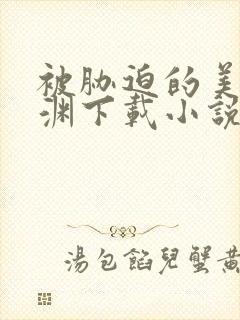 被胁迫的美
渊下载小说
湯包餡兒蟹黃